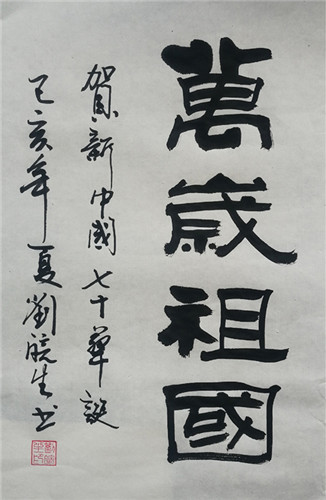 萬歲祖國
賀新中國七十華誕
己亥年夏劉皖生書